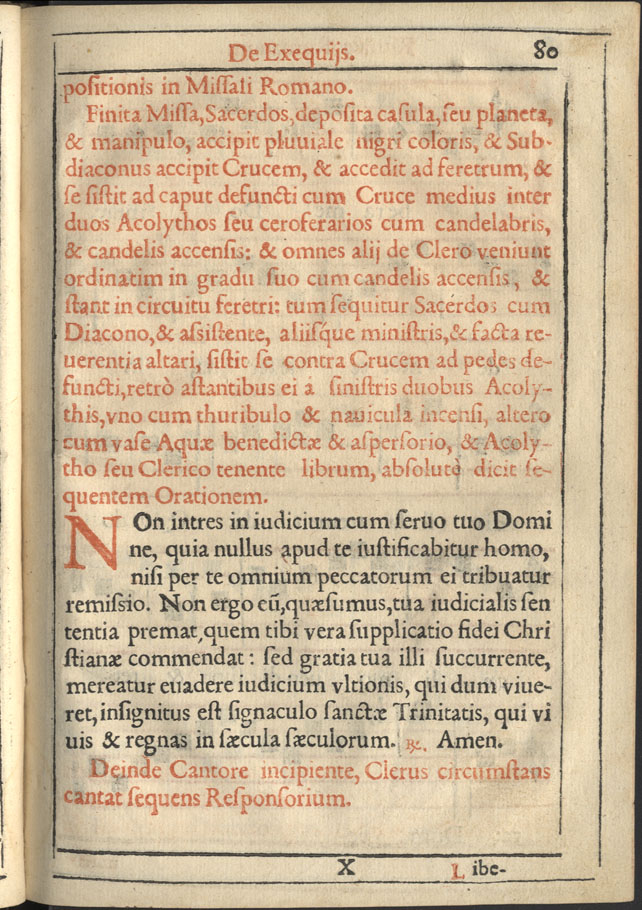 De Exequijs. 80
positionis in Missali Romano.
Finita Missa, Sacerdos, deposita casula, seu planeta,
& manipulo, accipit pluuiale nigri coloris, & Sub-
diaconus accipit Crucem, & accedit ad feretrum, &
se sistit ad caput defuncti cum Cruce medius inter
duos Acolythos seu ceroferarios cum candelabris,
& candelis accensis: & omnes alij de Clero veniunt
ordinatim in gradu suo cum candelis accensis, &
stant in circuitu feretri: tum sequitur Sacérdos cum
Diacono, & assistente, aliisq́ue ministris, & facta re-
uerentia altari, sistit se contra Crucem ad pedes de-
functi, retrò astantibus ei à sinistris duobus Acoly-
this, vno cum thuribulo & nauicula incensi, altero
cum vase Aquæ benedictæ & aspersorio, & Acoly-
tho seu Clerico tenente librum, absolutè dicit se-
quentem Orationem.
NOn intres in iudicium cum seruo tuo Domi
ne, quia nullus apud te iustificabitur homo,
nisi per te omnium peccatorum ei tribuatur
remissio. Non ergo eũ, quæsumus, tua iudicialis sen
tentia premat, quem tibi vera supplicatio fidei Chri
stianæ commendat: sed gratia tua illi succurrente,
mereatur euadere iudicium vltionis, qui dum viue-
ret, insignitus est signaculo sanctæ Trinitatis, qui vi
uis & regnas in sæcula sæculorum. ℞. Amen.
Deinde Cantore incipiente, Clerus circumstans
cantat sequens Responsorium.
X Libe-